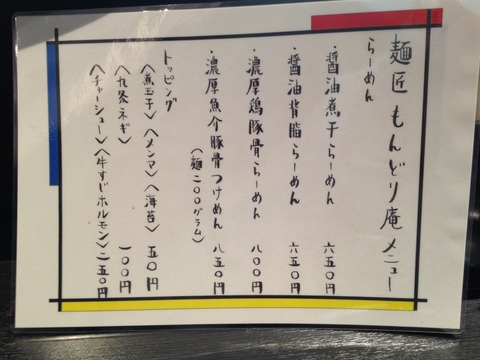 麺匠 もんどり庵 メニュー
らーめん
・醤油煮干らーめん 六五〇円
・醤油背脂らーめん 六五〇円
・濃厚鶏豚骨らーめん 八〇〇円
・濃厚魚介豚骨つけめん 八五〇円
(麺二〇〇グラム)
トッピング
〈煮玉子〉〈メンマ〉〈海苔〉 五〇円
〈九条ネギ〉 一〇〇円
〈チャーシュー〉〈牛すじホルモン〉二五〇円